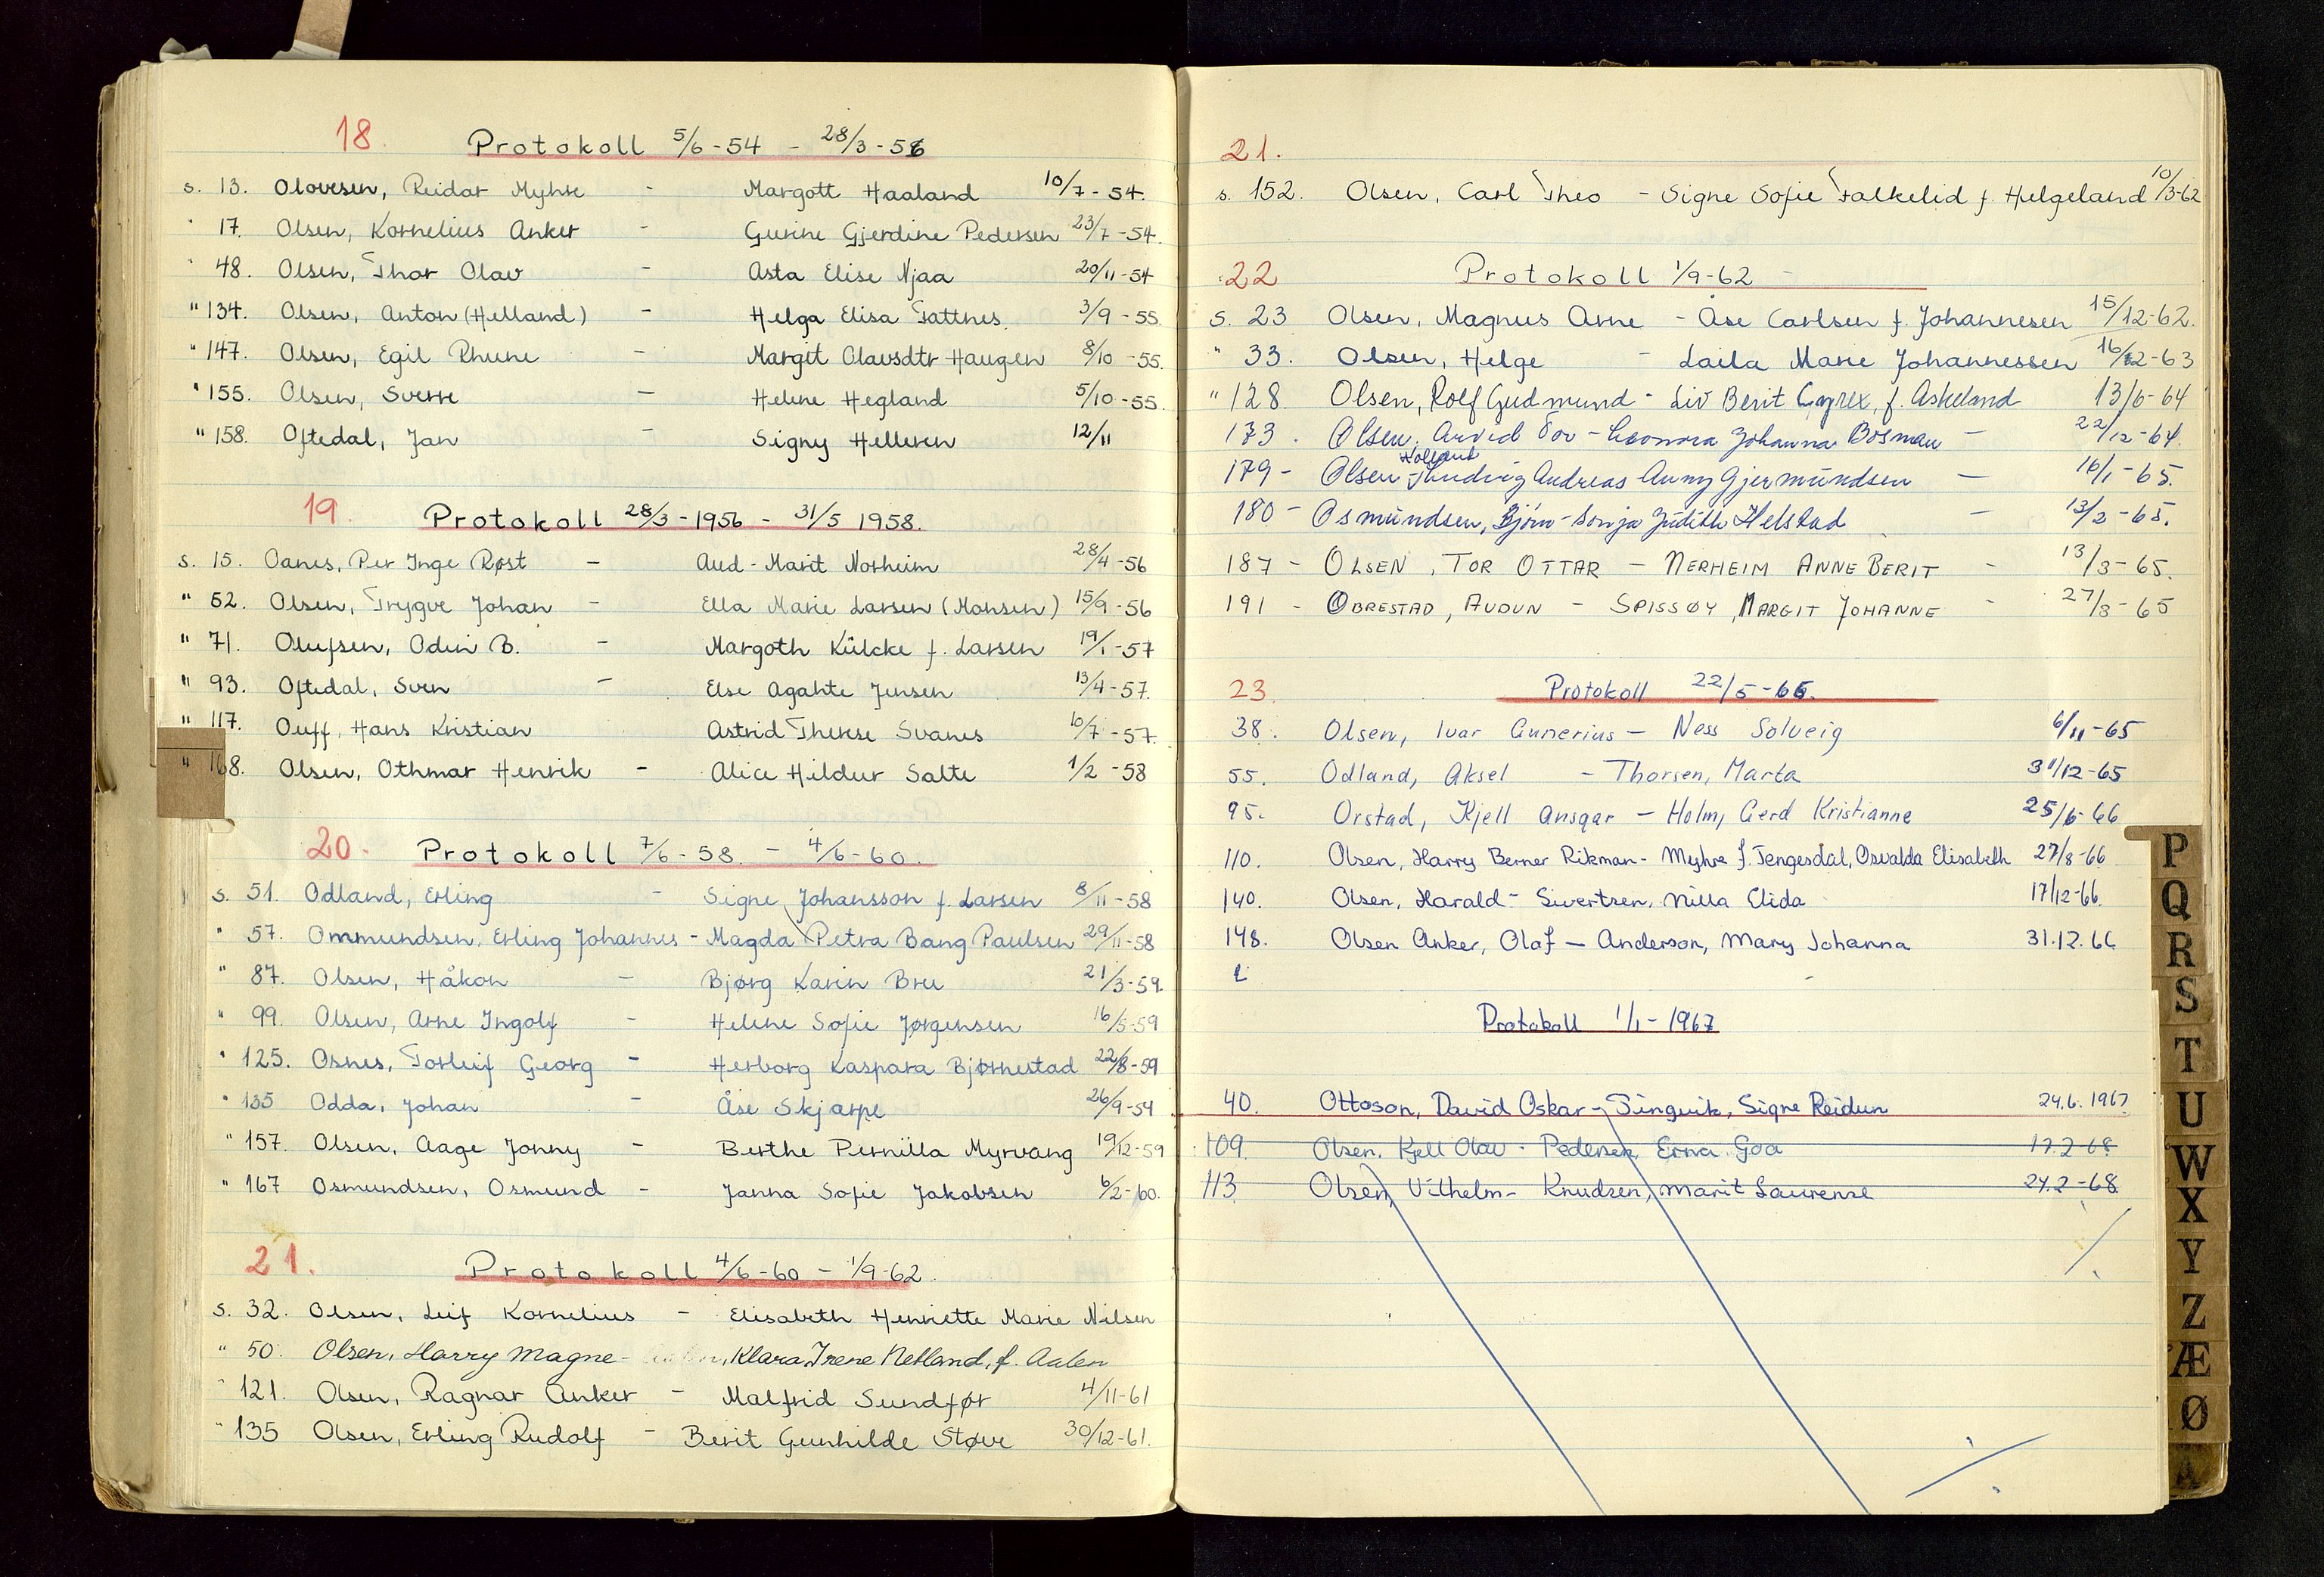 18. Protokoll 5/6-54 - 28/3-56
s. 13. Olovesen, Reidar Myhre - Margott Haaland 10/7-54.
" 17. Olsen, Kornelius Anker - Gurine Gjerdine Pedersen 23/7-54.
" 48. Olsen, Thor Olav - Asta Elise Njaa 20/11-54
" 134. Olsen, Anton (Helland) - Helga Elisa Tattnes. 3/9-55
" 147. Olsen, Egil Rhune - Margit Olavsdtr Haugen 8/10-55.
" 155. Olsen, Sverre - Helene Hegland 5/10-55.
" 158. Oftedal, Jan - Signy Helleren 12/11
19. Protokoll 28/3-1956 - 31/5 1958.
s. 15. Oanes, Per Inge Røst - Aud-Marit Norheim 28/4-56
" 52. Olsen, Trygve Johan - Ella Marie Larsen (Monsen) 15/9-56
" 71. Olufsen, Odin B. - Margoth Külcke f. Larsen 19/1-57
" 93. Oftedal, Sven - Else Agahte Jensen 13/4-57.
" 117. Ouff, Hans Kristian Astrid Therese Svanes 10/7-57.
" 168. Olsen, Othmar Henrik - Alice Hildur Salte 1/2-58
20. Protokoll 7/6-58. - 4/6-60.
s. 51. Odland, Erling - Signe Johansson f. Larsen 8/11-58
" 57. Ommundsen, Erling Johannes - Magda Petra Bang Paulsen 29/11-58
" 87. Olsen, Håkon - Bjørg Karin Bru 21/3-59.
" 99. Olsen, Arne Ingolf - Helene Sofie Jørgensen 16/5-59
" 125. Osnes, Torleif Georg - Herborg Kaspara Bjørnestad 22/8-59
" 135 Odda, Johan - Åse Skjarpe 26/9-59
" 157. Olsen, Aage Jonny - Berthe Pernilla Myrvang 19/12-59
" 167 Osmundsen, Osmund - Janna Sofie Jakobsen 6/2-60.
21. Protokoll 4/6-60 - 1/9-62.
s. 32. Olsen, Leif Kornelius - Elisabeth Henriette Marie Nilsen
" 50. Olsen, Harry Magne - Klara Irene Netland, f. Aalen
" 121. Olsen, Ragnar Anker - Malfrid Sundfør 4/11-61
" 135 Olsen, Erling Rudolf - Berit Gunhilde Støve 30/12-61.
21.
s. 152. Olsen, Carl Theo - Signe Sofie Falkelid f. Helgeland 10/3-62
22 Protokoll 1/9-62 -
s. 23 Olsen, Magnus Arne - Åse Carlsen f. Johannesen 15/12-62.
" 33. Olsen, Helge - Laila Marie Johannessen 16/2-63
" 128 Olsen, Rolf Gudmund - Liv Berit f. Askeland 13/6-64
173. Olsen, Arvid Tor - Leonora Johanna Bosman - 22/12-64.
179 - Olsen Ludvig Andreas Anny Gjermundsen - 16/1-65.
180 - Osmundsen, Bjørn - Sonja Judith Helstad - 13/2-65.
187 - OLSEN, TOR OTTAR - NERHEIM ANNE BERIT - 13/3-65.
191 - OBRESTAD, AUDUN - SPISSØY, MARGIT JOHANNE - 27/3-65
23 Protokoll 22/5-65.
38. Olsen, Ivar Gunerius - Ness Solveig 6/11-65
55. Odland, Aksel - Thorsen, Marta 31/12-65
95. Orstad, Kjell Ansgar - Holm, Gerd Kristianne 25/6-66
110. Olsen, Harry Berner Rikman - Myhre f. Tengesdal, Osvalda Elisabeth 27/8-66
140. Olsen, Harald - Sivertsen, Nilla Elida 17/12-66.
148. Olsen Anker, Olaf - Anderson, Mary Johanna 31.12.66
Protokoll 1/1-1967
40. Ottoson, David Oskar - Tingvik, Signe Reidun 24.6.1967
109. Olsen, Kjell Olav - Pedersen, Erna Goa 17.2-68
113 Olsen, Vilhelm - Knudsen, Marit Laurense 24.2-68
P
Q
R
S
T
U
W
X
Y
Z
Æ
Ø
A